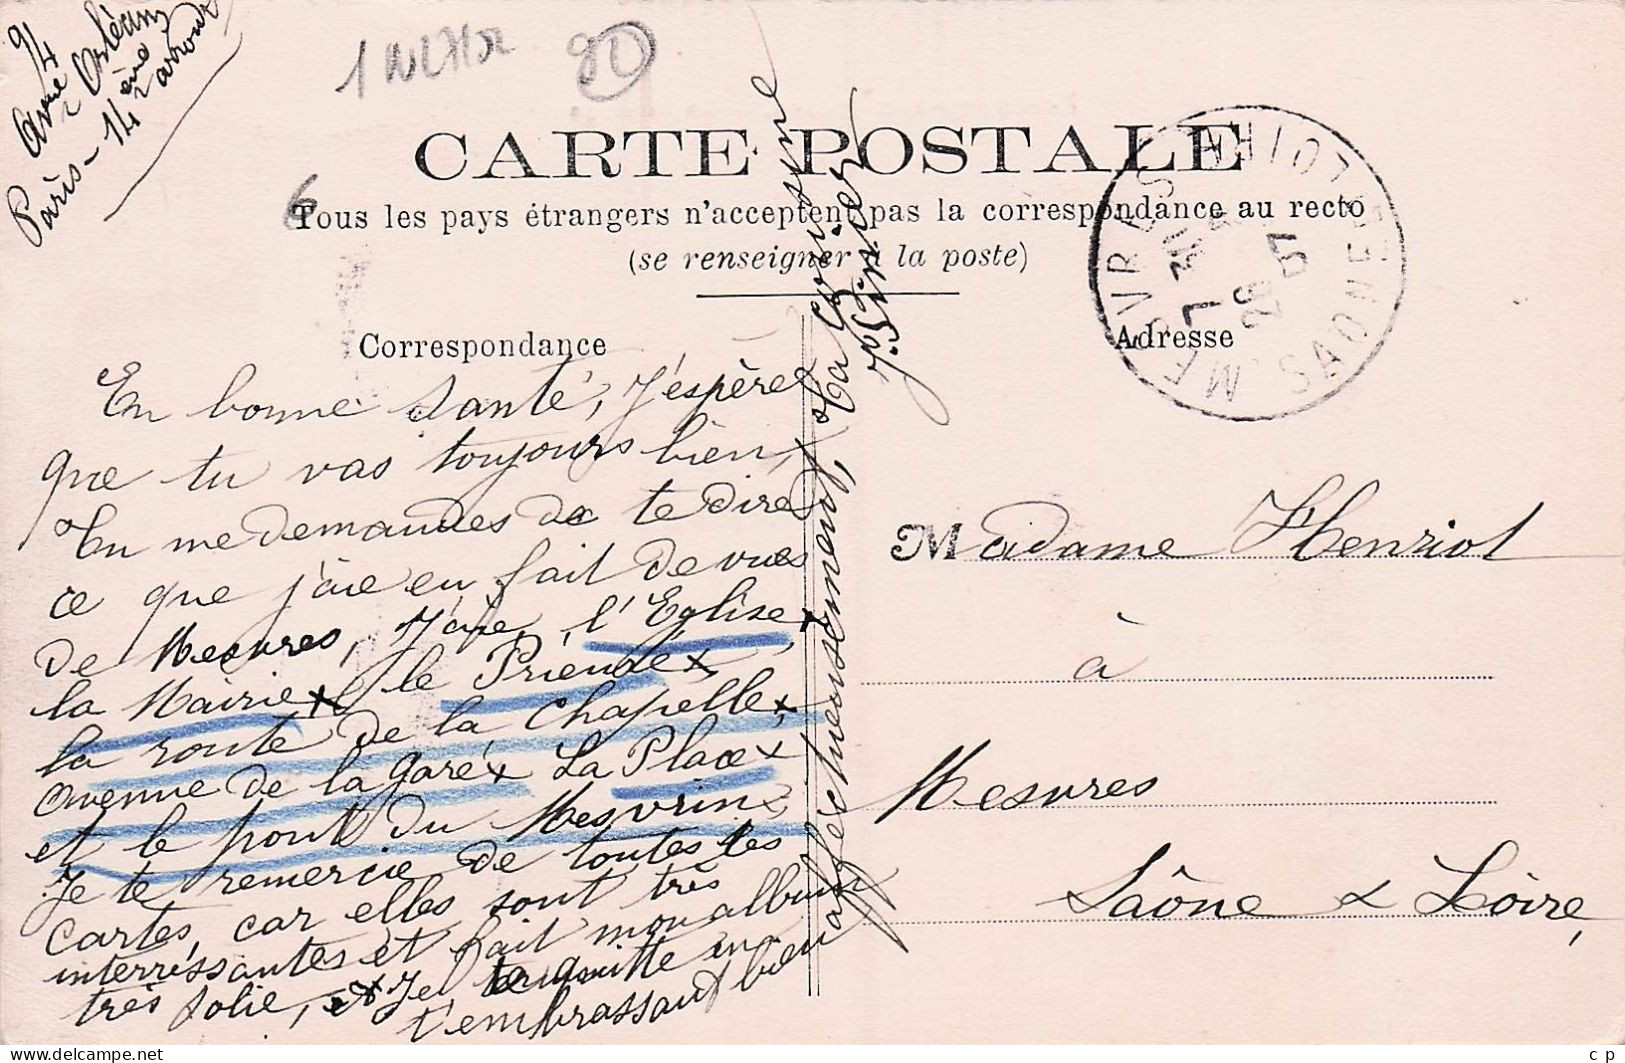 94
Avenue Orléans
Paris - 14ème arrond
CARTE POSTALE
Tous les pays étrangers n'acceptent pas la correspondance au recto
(se renseigner à la poste)
Correspondance
Adresse
En bonne santé, j'espère
que tu vas toujours bien,
Tu me demandes de te dire
ce que j'aie en fait de vues
de Mesvres, J'aie, l'Eglise x
la Mairie x le Prieuré x
la route de la Chapelle x
avenue de la gare x La Place x
et le pont du Mesvrin x
Je te remercie de toutes tes
cartes, car elles sont très
interréssantes et fait mon album
très jolie, et Je te quitte en
t'embrassant bien
affectueusement, Ta cousine
Madame Henriot
à
Mesvres
Saône & Loire,
MESVRES
SAONE
c p